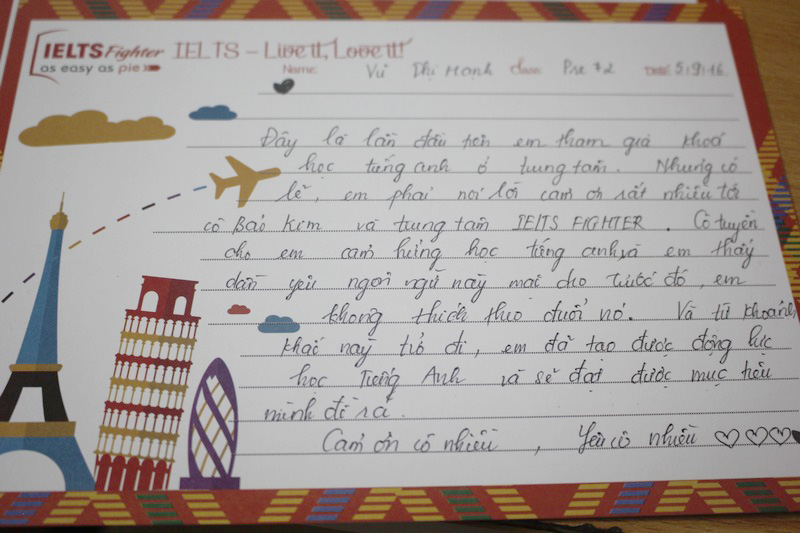 IELTS Fighter
as easy as pie
IELTS - Live it, Love it!
Name: Vũ Thị Hạnh Class: Pre 72 Date: 5.9.16
Đây là lần đầu tiên em tham gia khoá
học tiếng anh ở trung tâm. Nhưng có
lẽ, em phải nói lời cảm ơn rất nhiều tới
cô Bảo Kim và trung tâm IELTS FIGHTER. Cô truyền
cho em cảm hứng học tiếng anh và em thấy
dần yêu ngôn ngữ này mặc cho trước đó, em
không thích theo đuổi nó. Và từ khoảnh
khắc này trở đi, em đã tạo được động lực
học Tiếng Anh và sẽ đạt được mục tiêu
mình đề ra.
Cảm ơn cô nhiều, Yêu cô nhiều ♡♡♡